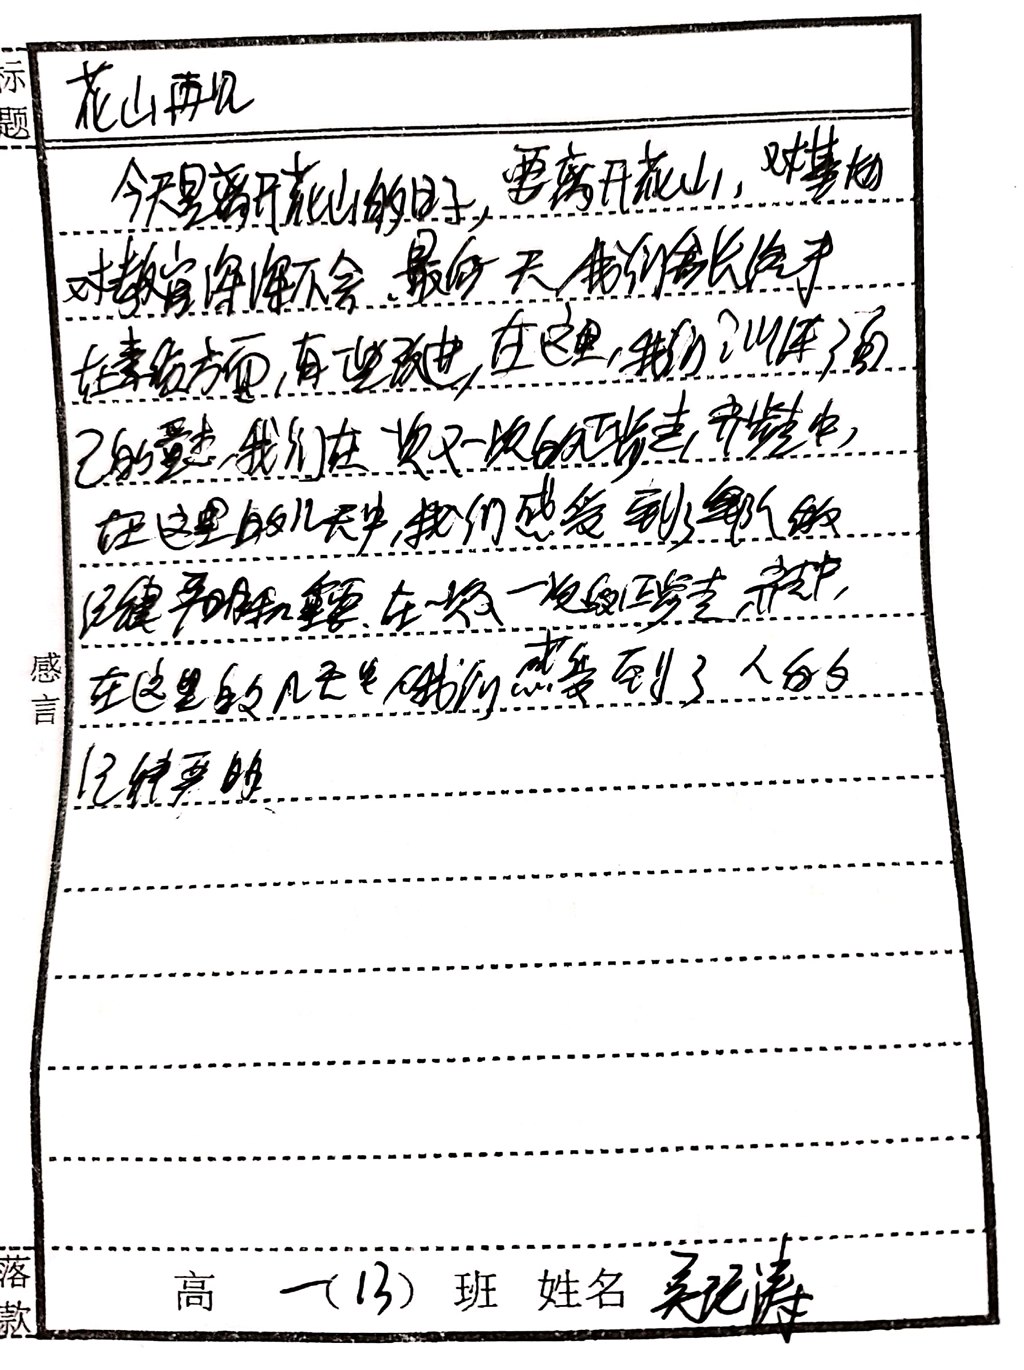 标题
花山再见
今天是离开花山的日子，要离开花山，对基地
对教官深深不舍.最后一天,我们会长
在素质方面,有一些改进,在这里,我们训练了自
己的意志,我们在一次又一次的正步走,齐步走中,
在这里的几天中,我们感受到了军队的
纪律严明和重要.在一次又一次的正步走,齐走中,
在这里的几天中,我们感受到了人的
纪律严明
感言
落款
高 一(13) 班 姓名 吴 涛